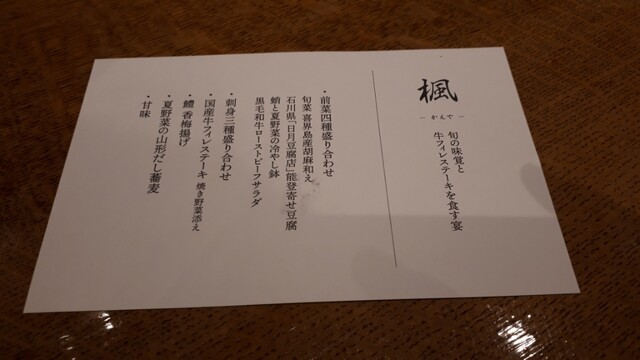 楓
- かんで -
旬の味覚と
牛フィレステーキを食す宴
・前菜四種盛り合わせ
旬菜 喜界島産胡麻和え
石川県「日月豆腐店」能登寄せ豆腐
鮹と夏野菜の冷やし鉢
黒毛和牛ローストビーフサラダ
・刺身三種盛り合わせ
・国産牛フィレステーキ 焼き野菜添え
・鱧 香梅揚げ
・夏野菜の山形だし蕎麦
・甘味